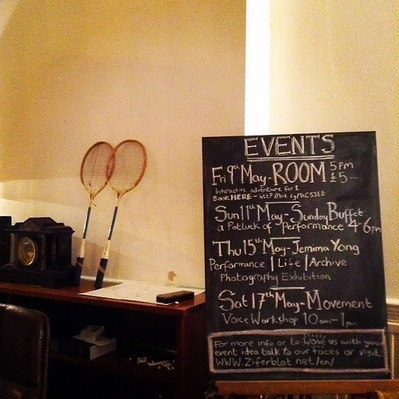 EVENTS
Fri 9th May - ROOM 5pm
£5-
Interactive adventure for 1
Book HERE -
Sun 11th May - Sunday Buffet
a Potluck of Performance 4-6pm
Thu 15th May - Jemima Yong
Performance | Life | Archive
Photography Exhibition
Sat 17th May - Movement
Voice Workshop 10am-1pm
For more info or to WOW us with your
event idea talk to our faces or visit
WWW.Ziferblat.net/en/